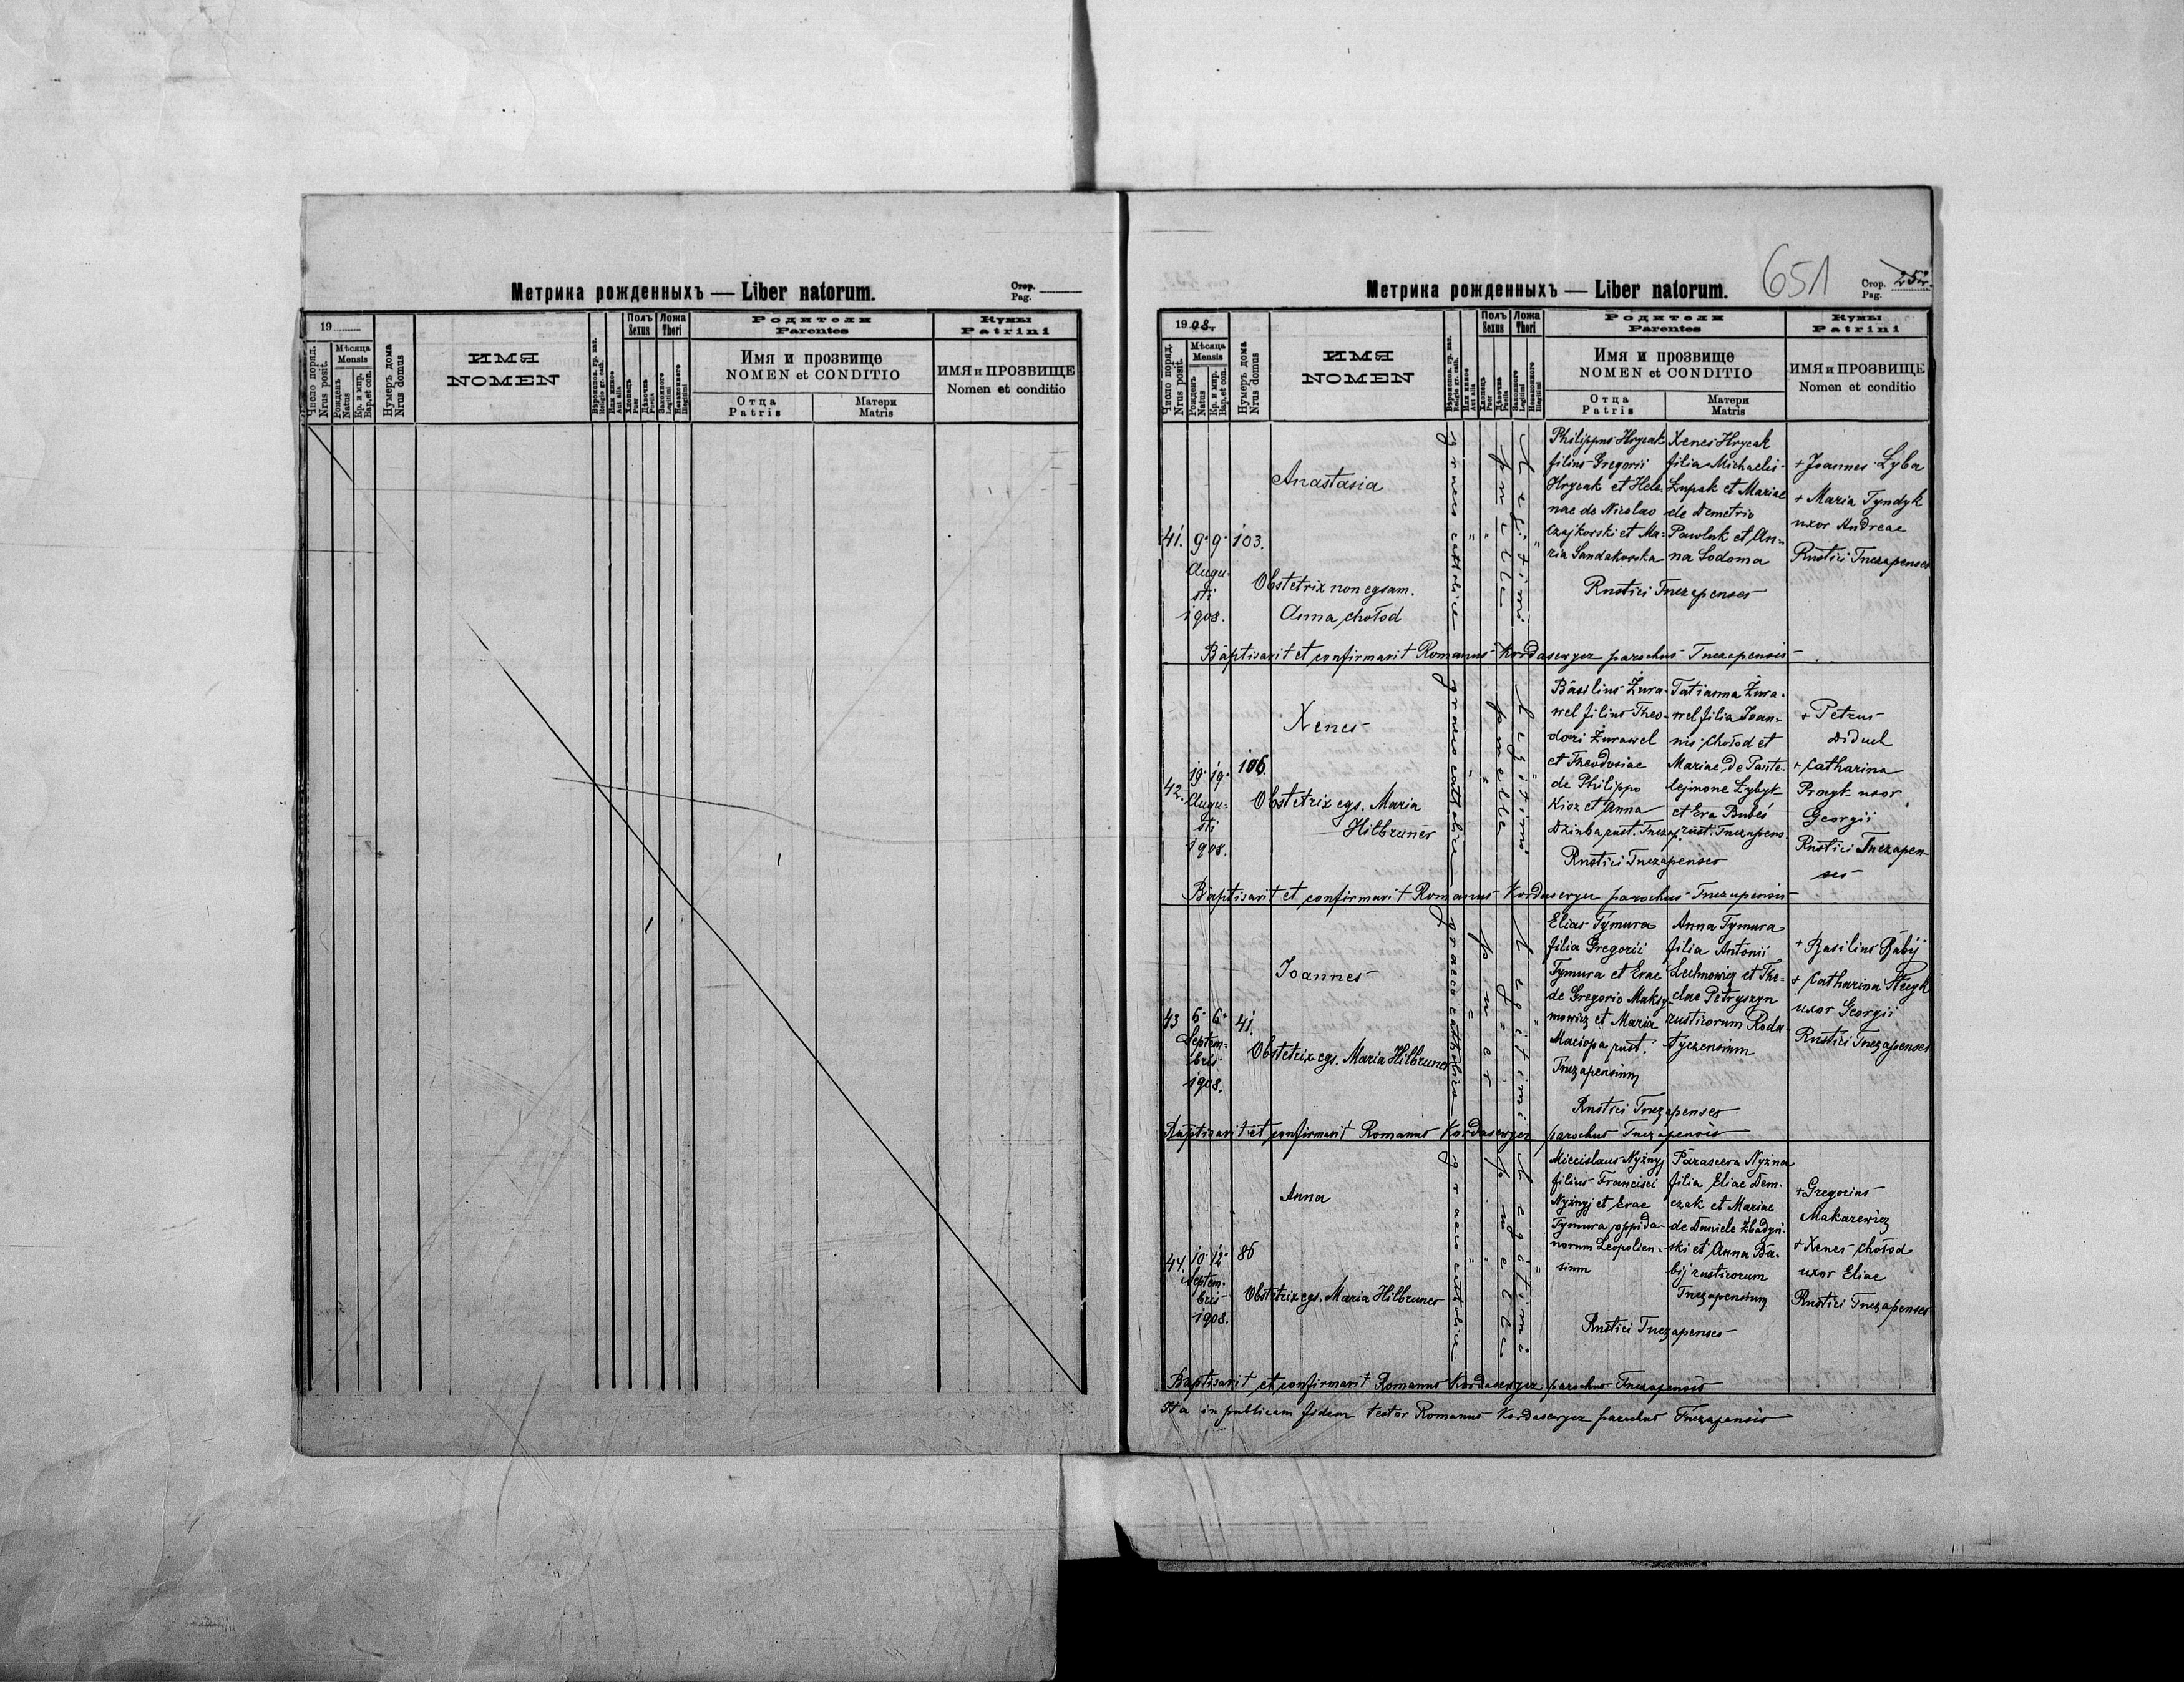 Метрика рожденныхъ — Liber natorum.
Стор.
Pag.
19
Число поряд.
Nrus posit.
Мѣсяца
Mensis
Рожденъ
Natus
Кр. и мѵр.
Bap. et con.
Нумеръ дома
Nrus domus
ИМЯ
NOMEN
Вѣроиспов. гр. кат.
Religio gr. cath.
Или инное
Aut alia
Полъ
Sexus
Хлопецъ
Puer
Дѣвочка
Puella
Ложа
Thori
Законного
Legitimi
Незаконного
Illegitimi
Родители
Parentes
Имя и прозвище
NOMEN et CONDITIO
Отца
Patris
Матери
Matris
Кумы
Patrini
ИМЯ и ПРОЗВИЩЕ
Nomen et conditio
651
Метрика рожденныхъ — Liber natorum.
Стор.
Pag.
252.
1908.
Число поряд.
Nrus posit.
Мѣсяца
Mensis
Рожденъ
Natus
Кр. и мѵр.
Bap. et con.
Нумеръ дома
Nrus domus
ИМЯ
NOMEN
Вѣроиспов. гр. кат.
Religio gr. cath.
Или инное
Aut alia
Полъ
Sexus
Хлопецъ
Puer
Дѣвочка
Puella
Ложа
Thori
Законного
Legitimi
Незаконного
Illegitimi
Родители
Parentes
Имя и прозвище
NOMEN et CONDITIO
Отца
Patris
Матери
Matris
Кумы
Patrini
ИМЯ и ПРОЗВИЩЕ
Nomen et conditio
41.
9. 9.
Augu-
sti
1908.
103.
Anastasia
Obstetrix non egsam.
Anna Chołod
graeco catholice
puellae
Legitimi
Philippus Hrycak
filius Gregorii
Hrycak et Hele-
nae de Nicolao
Czajkovski et Ma-
ria Sandakovska
Xenes Hrycak
filia Michaelis
Łupak et Mariae
de Demetrio
Pawluk et An-
na Sodoma
Rustici Tuczapenses
+ Joannes Zyba
+ Maria Tyndyk
uxor Andreae
Rustici Tuczapenses
Baptisavit et confirmavit Romanus Kordasewycz parochus Tuczapensis
42.
19. 19.
Augu-
sti
1908.
106.
Xenes
Obstetrix egs. Maria
Hilbruner
graeco catholice
puellae
Legitimi
Basilius Żura-
wel filius Theo-
dori Żurawel
et Theodosiae
de Philippo
Kisz et Anna
Dziuba rust. Tuczap.
Tatianna Żura-
wel filia Joan-
nis Chołod et
Mariae de Pante-
lejmone Zybyk
et Eva Bubeś
rust. Tuczapens.
Rustici Tuczapenses
+ Petrus
Diduch
+ Catharina
Pryk uxor
Georgii
Rustici Tuczapen-
ses
Baptisavit et confirmavit Romanus Kordasewycz parochus Tuczapensis
43
6. 6.
Septem-
bris
1908.
41.
Joannes
Obstetrix egs. Maria Hilbruner
graeco catholice
puer
Legitimi
Elias Tymura
filia Gregorii
Tymura et Evae
de Gregorio Maksy-
mowicz et Maria
Maciopa rust.
Tuczapensium
Anna Tymura
filia Antonii
Lechnowicz et The-
clae Petryszyn
rusticorum Roda-
tyczensium
Rustici Tuczapenses
+ Basilius Babij
+ Catharina Steczyk
uxor Georgii
Rustici Tuczapenses
Baptisavit et confirmavit Romanus Kordasewycz parochus Tuczapensis
44.
10. 12.
Septem-
bris
1908.
86
Anna
Obstetrix egs. Maria Hilbruner
graeco catholice
puellae
Legitimi
Miecislaus Nyżnyj
filius Francisci
Nyżnyj et Evae
Tymura oppida-
norum Leopolien-
sium
Parasceva Nyżna
filia Eliae Dem-
czak et Mariae
de Daniele Zbadyń-
ski et Anna Ba-
bij rusticorum
Tuczapensium
Rustici Tuczapenses
+ Gregorius
Makarewicz
+ Xenes Chołod
uxor Eliae
Rustici Tuczapenses
Baptisavit et confirmavit Romanus Kordasewycz parochus Tuczapensis
Ita in publicam fidem testor Romanus Kordasewycz parochus Tuczapensis